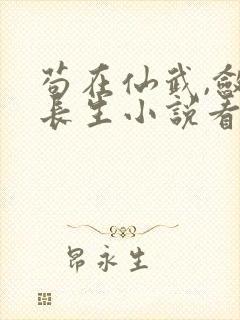 苟在仙武,
長生小說看
昂永生